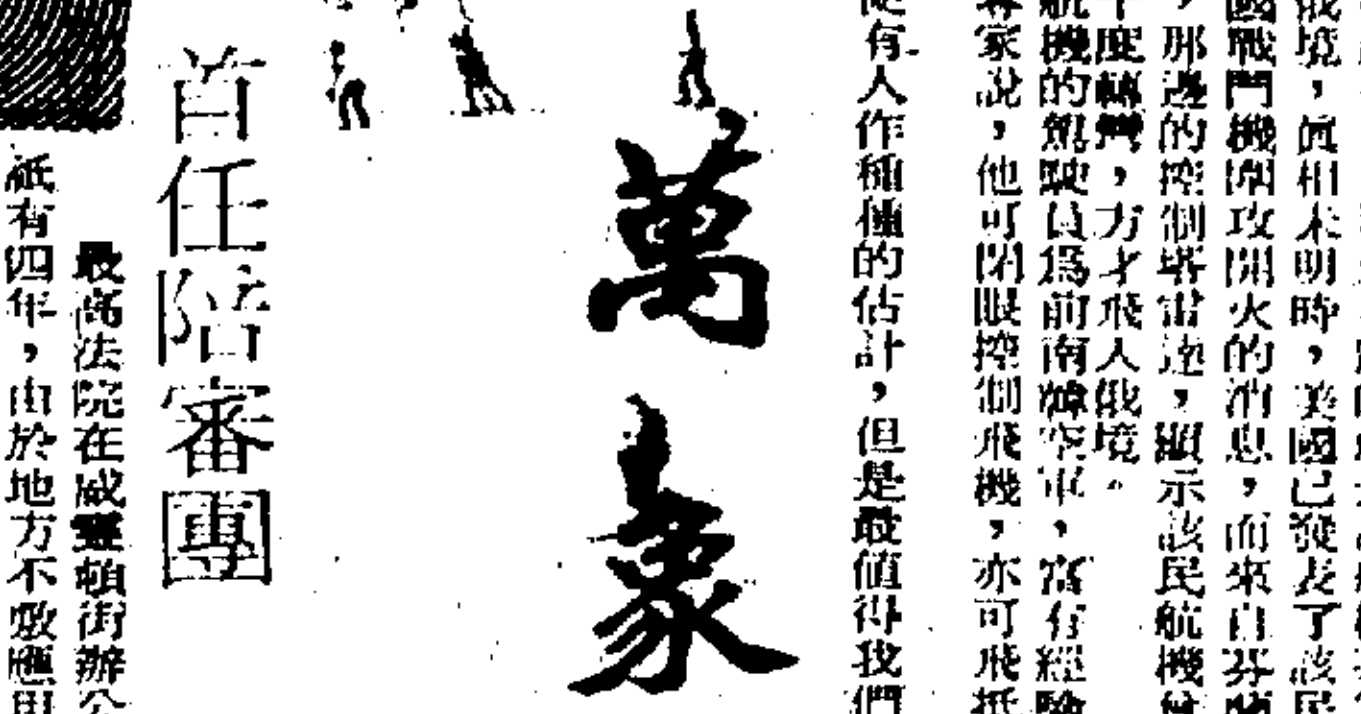 俄境，眞相未明時，美國已發表了該民
國戰鬥機開攻開火的消息，而來自芬蘭
，那邊的控制塔雷達，顯示該民航機
十度轉彎，方才飛入俄境。
航機的駕駛員爲前南韓空軍，富有經驗
專家說，他可閉眼控制飛機，亦可飛抵
有人作種種的估計，但是最値得我們
萬象
首任陪審團
最高法院在威靈頓街辦公
祇有四年，由於地方不敷應用